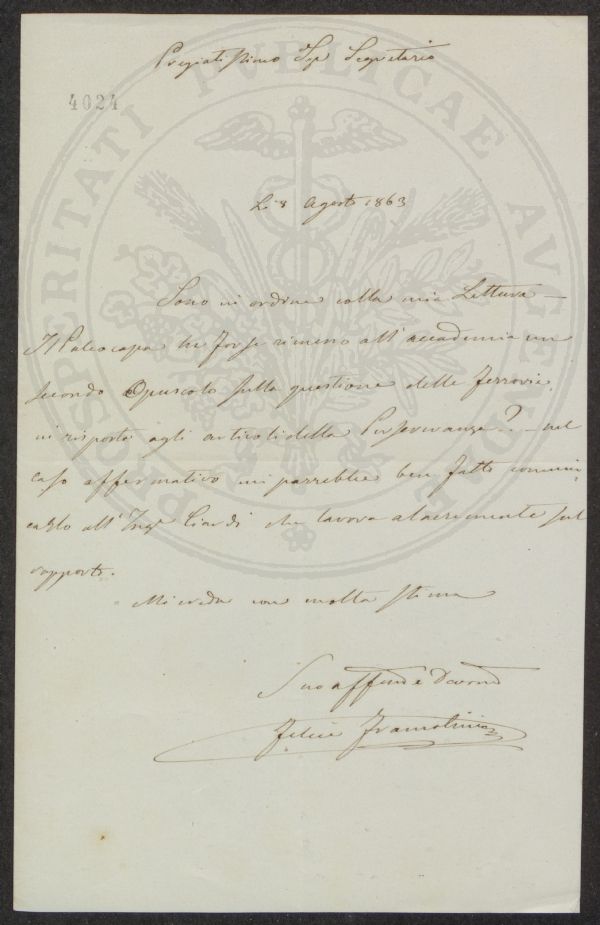 Pregiatissimo Sigr Segretario
4024
PROSPERITATI PUBLICAE AUGENDAE
Li 8 Agosto 1863
Sono in ordine colla mia Lettura —
Il Paleocapa ha forse rimesso all'accademia un
secondo Opuscolo sulla questione delle Ferrovie,
in risposta agli articoli della Perseveranza? — nel
caso affermativo mi parrebbe ben fatto communi-
carlo all'Ingr che lavora alacremente sul
rapporto.
Mi creda con molta stima
Suo affmo e Devmo
Felice